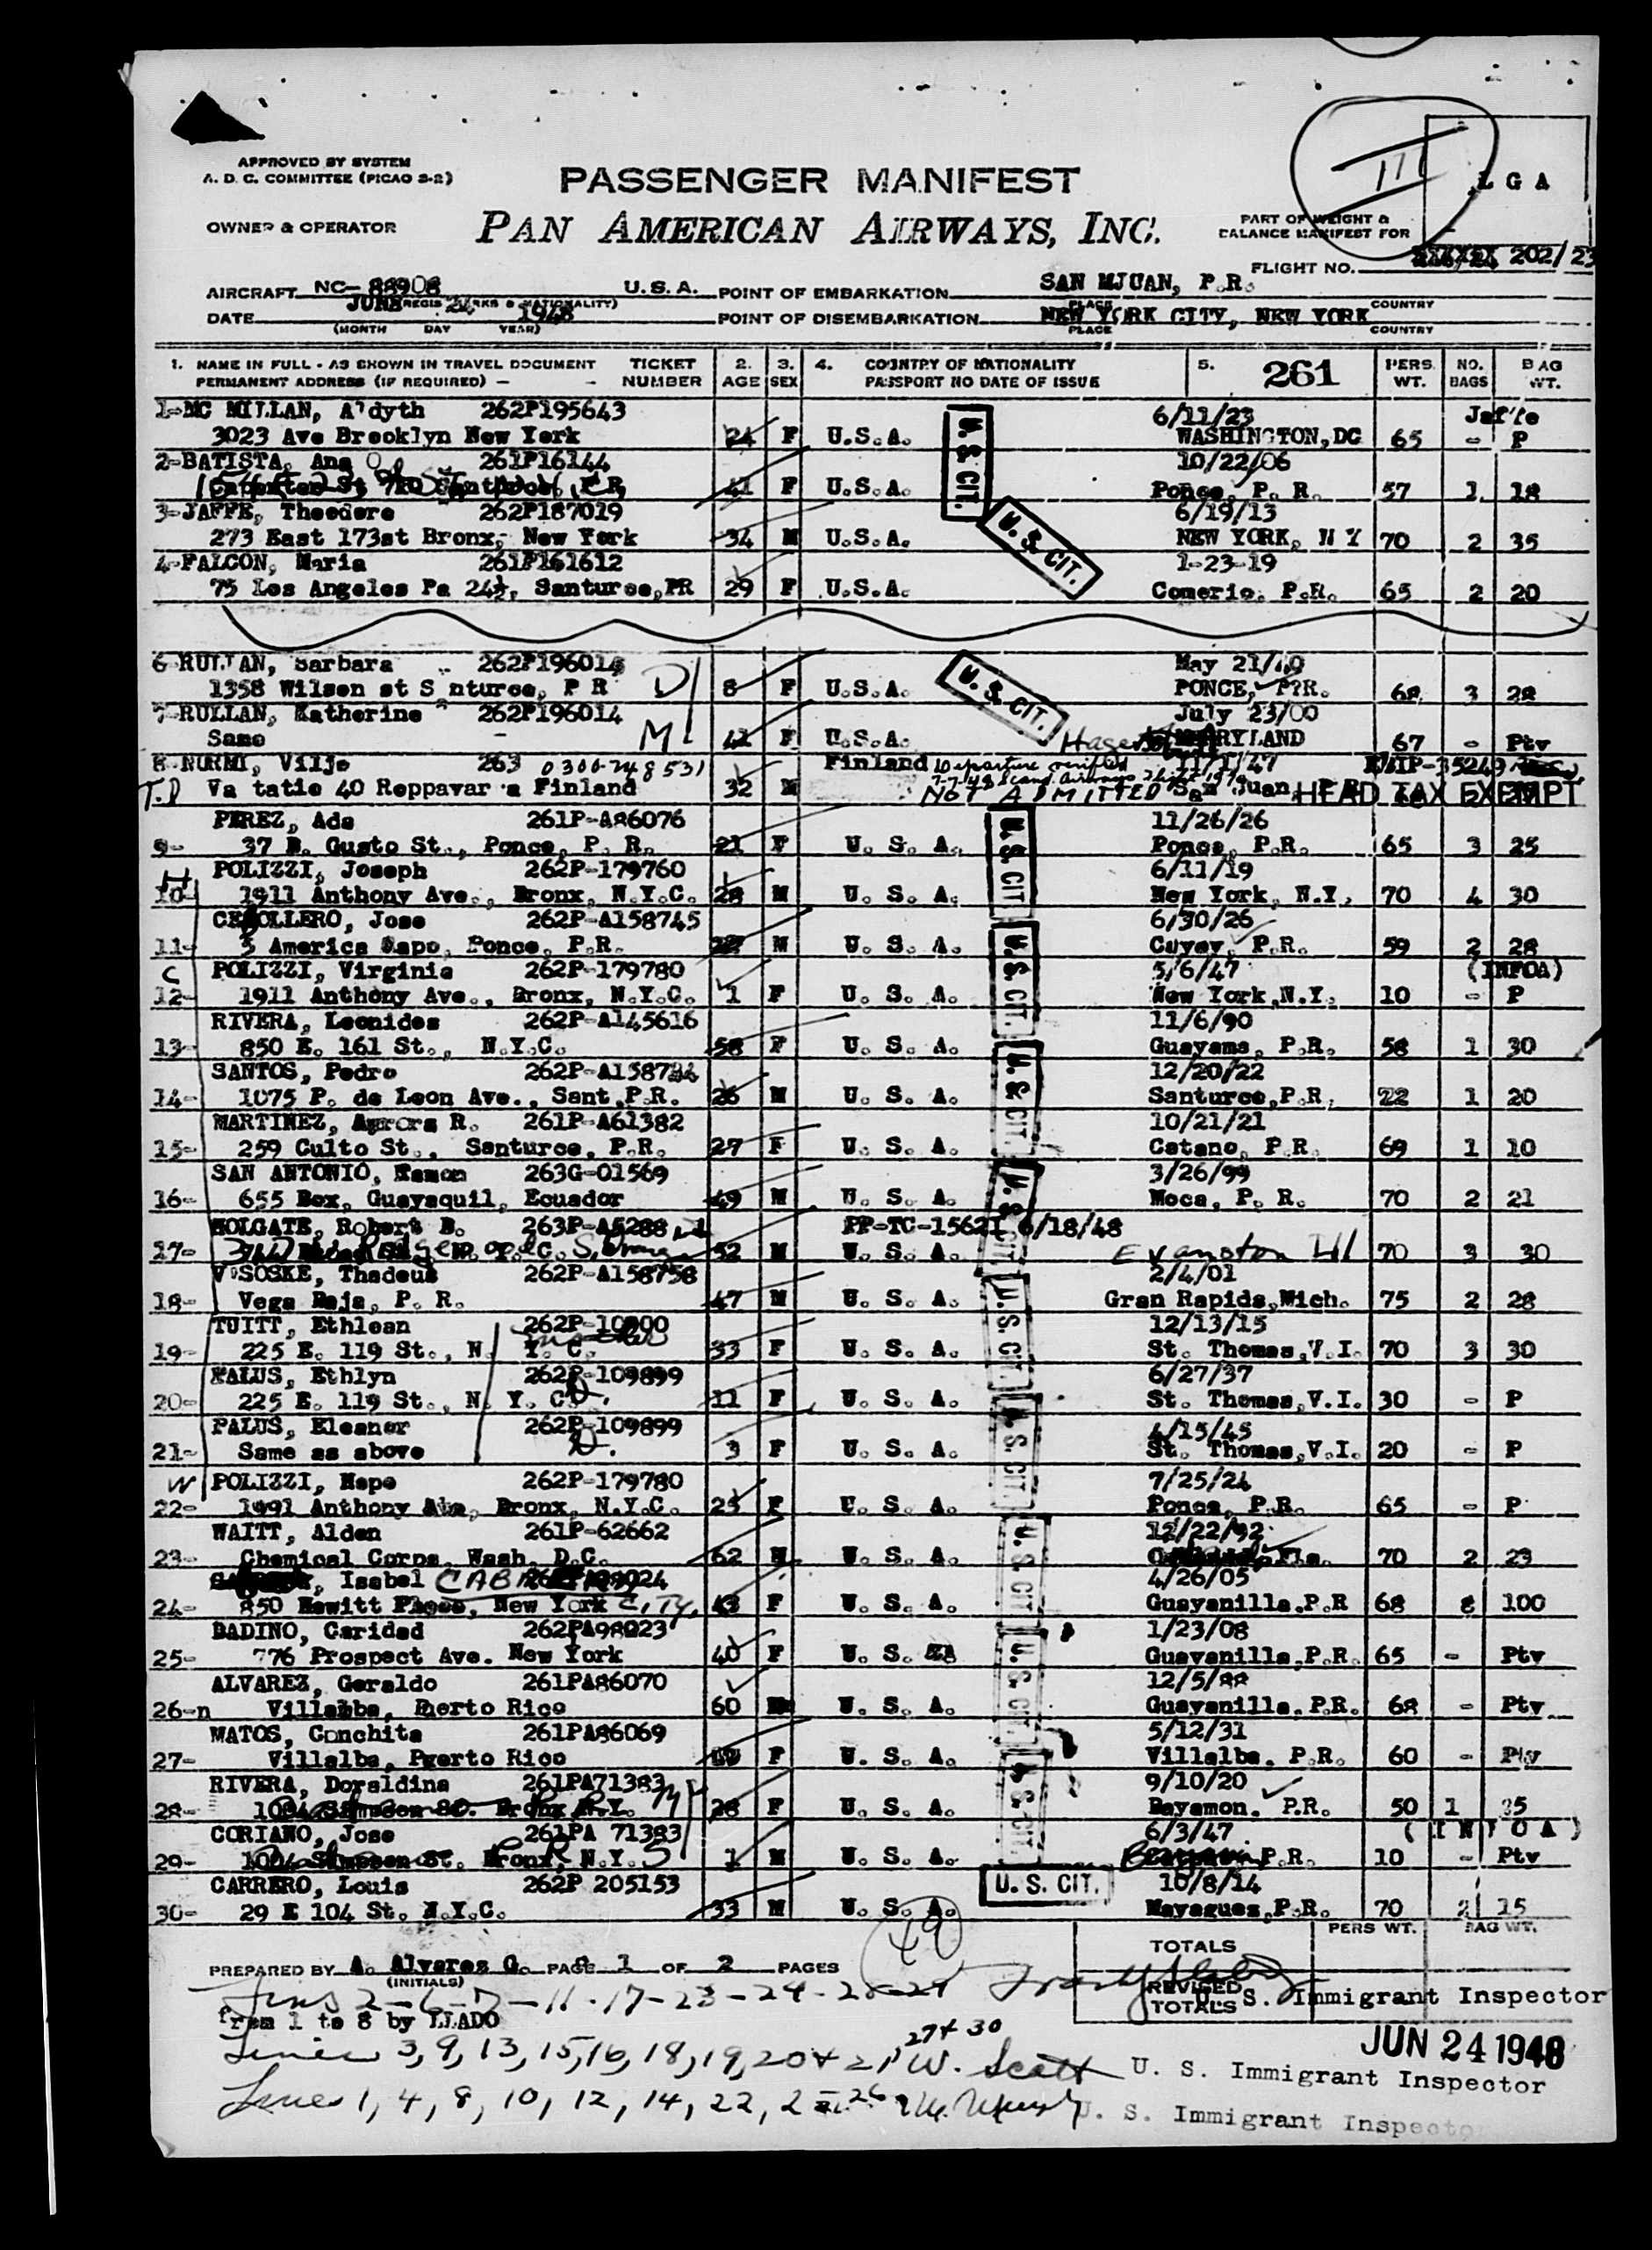 III
L G A
APPROVED BY SYSTEM
A. D. C. COMMITTEE (PICAO 3-2)
PASSENGER MANIFEST
OWNER & OPERATOR
PAN AMERICAN AIRWAYS, INC.
PART OF WEIGHT &
BALANCE MANIFEST FOR
FLIGHT NO. 202/23
AIRCRAFT NC-88908 U.S.A. POINT OF EMBARKATION SAN MJUAN, P.R.
(REGIS. MARKS & NATIONALITY) PLACE COUNTRY
DATE JUNE 24 1948 POINT OF DISEMBARKATION NEW YORK CITY, NEW YORK
(MONTH DAY YEAR) PLACE COUNTRY
1. NAME IN FULL - AS SHOWN IN TRAVEL DOCUMENT TICKET 2. 3. 4. COUNTRY OF NATIONALITY 5. 261 PERS. NO. BAG
PERMANENT ADDRESS (IF REQUIRED) - - NUMBER AGE SEX PASSPORT NO DATE OF ISSUE WT. BAGS WT.
1-MC MILLAN, A'dyth 262P195643 6/11/23 Jaffe
3023 Ave Brooklyn New York 24 F U.S.A. WASHINGTON,DC 65 - P
2-BATISTA, Ana 261P16144 10/22/06
41 F U.S.A. Ponce, P. R. 57 1 18
3-JAFFE, Theodore 262P187019 6/19/13
273 East 173st Bronx, New York 34 M U.S.A. NEW YORK, N Y 70 2 35
4-FALCON, Maria 261P161612 1-23-19
75 Los Angeles Pa 24½, Santurce,PR 29 F U.S.A. Comerio. P.R. 65 2 20
6 RULLAN, Barbara 262P196014 D May 21/40
1358 Wilson st S nturce, P R 8 F U.S.A. PONCE, P.R. 68 3 28
7-RULLAN, Katherine 262P196014 July 23/00
Same - M 41 F U.S.A. MARYLAND 67 - Ptv
8 NURMI, Viljo 263 0300-748531 Finland Departure verified 11/1/47
T.D Va tatie 40 Reppavar a Finland 32 M NOT ADMITTED San Juan, HEAD TAX EXEMPT
PEREZ, Ada 261P-A86076 11/26/26
9- 37 B. Gusto St., Ponce, P. R. 21 F U. S. A. Ponce, P.R. 65 3 25
H POLIZZI, Joseph 262P-179760 6/11/19
10- 1911 Anthony Ave., Bronx, N.Y.C. 28 M U. S. A. New York, N.Y. 70 4 30
CEBOLLERO, Jose 262P-A158745 6/30/26
11- 5 America Capo, Ponce, P.R. M U. S. A. Cayey, P.R. 59 2 28
C POLIZZI, Virginia 262P-179780 5/6/47 (INFOA)
12- 1911 Anthony Ave., Bronx, N.Y.C. 1 F U. S. A. New York,N.Y. 10 - P
RIVERA, Leonides 262P-A145616 11/6/90
13- 850 E. 161 St., N.Y.C. 58 F U. S. A. Guayama, P.R. 58 1 30
SANTOS, Pedro 262P-A158744 12/20/22
14- 1075 P. de Leon Ave., Sant.P.R. 26 M U. S. A. Santurce,P.R. 72 1 20
MARTINEZ, Aurora R. 261P-A61382 10/21/21
15- 259 Culto St., Santurce, P.R. 27 F U. S. A. Catano, P.R. 69 1 10
SAN ANTONIO, Ramon 263G-01569 3/26/99
16- 655 Box, Guayaquil, Ecuador 49 M U. S. A. Moca, P. R. 70 2 21
HOLGATE, Robert B. 263P-A5288 PP-TC-15621 6/18/48
17- 52 M U. S. A. Evanston Ill 70 3 30
V'SOSKE, Thadeus 262P-A158758 2/4/01
18- Vega Baja, P. R. 47 M U. S. A. Gran Rapids,Mich. 75 2 28
TUITT, Ethlean 262P-10900 12/13/15
19- 225 E. 119 St., N. Y. C. 33 F U. S. A. St. Thomas,V.I. 70 3 30
PALUS, Ethlyn 262P-109899 6/27/37
20- 225 E. 119 St., N. Y. C. D. 11 F U. S. A. St. Thomas,V.I. 30 - P
PALUS, Eleanor 262P-109899 4/15/45
21- Same as above D. 3 F U. S. A. St. Thomas,V.I. 20 - P
W POLIZZI, Hope 262P-179780 7/25/24
22- 1991 Anthony Ave, Bronx, N.Y.C. 23 F U. S. A. Ponce, P.R. 65 - P
WAITT, Alden 261P-62662 12/22/92
23- Chemical Corps, Wash. D.C. 62 M U. S. A. Fla. 70 2 23
, Isabel 4/26/05
24- 850 Hewitt Place, New York CITY, 43 F U. S. A. Guayanilla.P.R 68 8 100
BADINO, Caridad 262PA98023 1/23/08
25- 776 Prospect Ave. New York 40 F U. S. Guayanilla,P.R. 65 - Ptv
ALVAREZ, Geraldo 261PA86070 12/5/88
26-n Villabba, Puerto Rico 60 U. S. A. Guayanilla, P.R. 68 - Ptv
MATOS, Conchita 261PA86069 5/12/31
27- Villalba, Puerto Rico F U. S. A. Villalba, P.R. 60 - Ptv
RIVERA, Doraldina 261PA71383 M 9/10/20
28- 28 F U. S. A. Bayamon. P.R. 50 1 35
CORIANO, Jose 261PA 71383 6/3/47 ( I N F O A )
29- S 1 M U. S. A. P.R. 10 - Ptv
CARRERO, Louis 262P 205153 10/8/14
30- 29 E 104 St. N.Y.C. 33 M U. S. A. Mayaguez,P.R. 70 2 15
U. S. CIT.
U. S. CIT.
U. S. CIT.
U. S. CIT.
U. S. CIT.
U. S. CIT.
U. S. CIT.
U. S. CIT.
U. S. CIT.
U. S. CIT.
U. S. CIT.
U. S. CIT.
U. S. CIT.
49
PERS WT. BAG WT.
TOTALS
PREPARED BY A. Alvarez G. PAGE 1 OF 2 PAGES
(INITIALS)
REVISED
TOTALS
U. S. Immigrant Inspector
Lines 2-6-7-11-17-23-24-28-29
from 1 to 8 by LLADO
27 + 30
JUN 24 1948
Lines 3, 9, 13, 15, 16, 18, 19, 20 + 21 W. Scott U. S. Immigrant Inspector
Lines 1, 4, 8, 10, 12, 14, 22, U. S. Immigrant Inspector